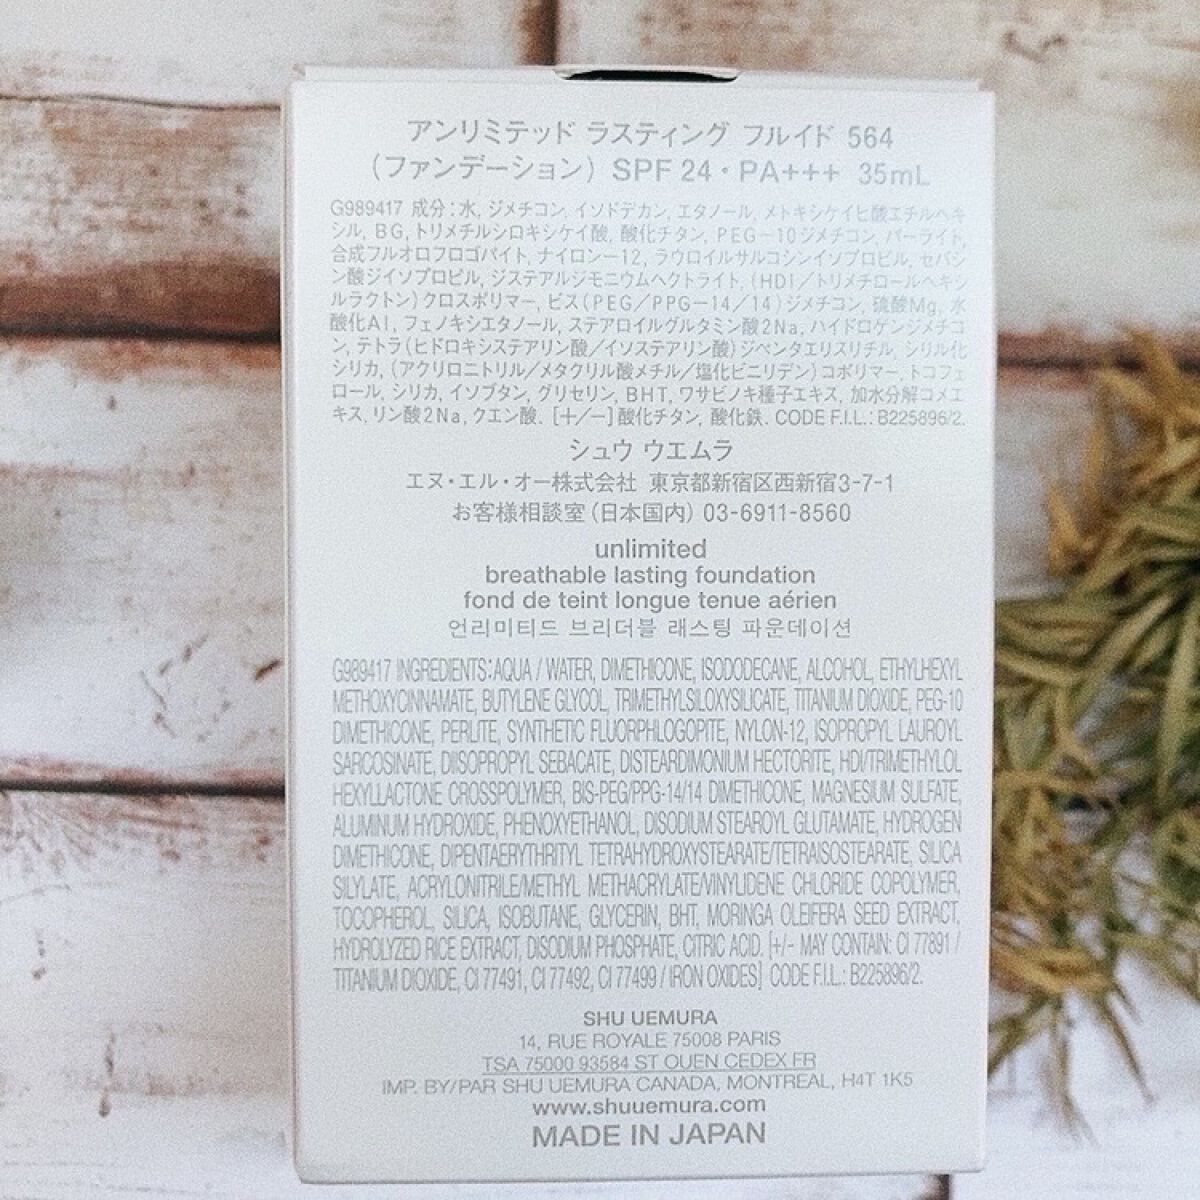 アンリミテッド ラスティング フルイド 564
（ファンデーション）SPF 24・PA+++ 35mL
G989417 成分：水, ジメチコン, イソドデカン, エタノール, メトキシケイヒ酸エチルヘキ
シル, BG, トリメチルシロキシケイ酸, 酸化チタン, PEG－10ジメチコン, パーライト,
合成フルオロフロゴパイト, ナイロン－12, ラウロイルサルコシンイソプロピル, セバシ
ン酸ジイソプロピル, ジステアルジモニウムヘクトライト, (HDI／トリメチロールヘキシ
ルラクトン)クロスポリマー, ビス(PEG／PPG－14／14)ジメチコン, 硫酸Mg, 水
酸化Al, フェノキシエタノール, ステアロイルグルタミン酸2Na, ハイドロゲンジメチコ
ン, テトラ(ヒドロキシステアリン酸／イソステアリン酸)ジペンタエリスリチル, シリル化
シリカ, (アクリロニトリル／メタクリル酸メチル／塩化ビニリデン)コポリマー, トコフェ
ロール, シリカ, イソブタン, グリセリン, BHT, ワサビノキ種子エキス, 加水分解コメエ
キス, リン酸2Na, クエン酸. [＋／－]酸化チタン, 酸化鉄. CODE F.I.L.: B225896/2.
シュウ ウエムラ
エヌ・エル・オー株式会社 東京都新宿区西新宿3-7-1
お客様相談室(日本国内) 03-6911-8560
unlimited
breathable lasting foundation
fond de teint longue tenue aérien
언리미티드 브리더블 래스팅 파운데이션
G989417 INGREDIENTS: AQUA / WATER, DIMETHICONE, ISODODECANE, ALCOHOL, ETHYLHEXYL
METHOXYCINNAMATE, BUTYLENE GLYCOL, TRIMETHYLSILOXYSILICATE, TITANIUM DIOXIDE, PEG-10
DIMETHICONE, PERLITE, SYNTHETIC FLUORPHLOGOPITE, NYLON-12, ISOPROPYL LAUROYL
SARCOSINATE, DIISOPROPYL SEBACATE, DISTEARDIMONIUM HECTORITE, HDI/TRIMETHYLOL
HEXYLLACTONE CROSSPOLYMER, BIS-PEG/PPG-14/14 DIMETHICONE, MAGNESIUM SULFATE,
ALUMINUM HYDROXIDE, PHENOXYETHANOL, DISODIUM STEAROYL GLUTAMATE, HYDROGEN
DIMETHICONE, DIPENTAERYTHRITYL TETRAHYDROXYSTEARATE/TETRAISOSTEARATE, SILICA
SILYLATE, ACRYLONITRILE/METHYL METHACRYLATE/VINYLIDENE CHLORIDE COPOLYMER,
TOCOPHEROL, SILICA, ISOBUTANE, GLYCERIN, BHT, MORINGA OLEIFERA SEED EXTRACT,
HYDROLYZED RICE EXTRACT, DISODIUM PHOSPHATE, CITRIC ACID. [+/- MAY CONTAIN: CI 77891 /
TITANIUM DIOXIDE, CI 77491, CI 77492, CI 77499 / IRON OXIDES] CODE F.I.L.: B225896/2.
SHU UEMURA
14, RUE ROYALE 75008 PARIS
TSA 75000 93584 ST OUEN CEDEX FR
IMP. BY/PAR SHU UEMURA CANADA, MONTREAL, H4T 1K5
www.shuuemura.com
MADE IN JAPAN